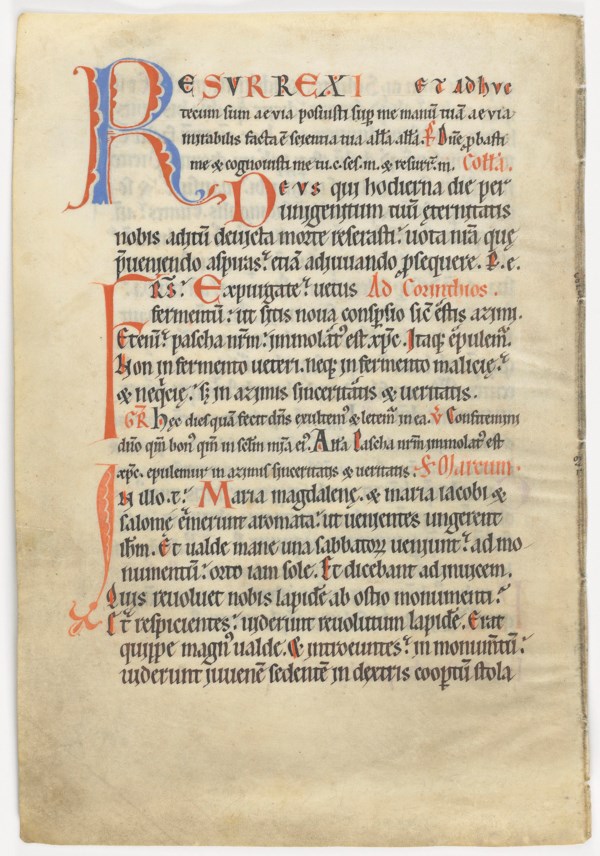 RESURREXI ET adhuc
tecum sum aeuia posuisti sup me manū tuā aeuia
mirabilis facta ē scientia tua alła alła. P Dn̄e p̱basti
me & cognouisti me tu. c. ses. m. & resurr̄. m. Coll̄a.
Deus qui hodierna die per
unigenitum tuū ęternitatis
nobis aditū deuicta morte reserasti: uota nr̄a quę
p̄ueniendo aspiras: etiā adiuuando p̱sequere. P. e.
FR̄S: Expurgate uetus Ad Corinthios.
fermentū: ut sitis noua consp̱sio sic̄ estis azimi.
Etenī pascha nr̄m: immolat᷒ est xp̄c. Itaq; ępulem̄.
Non in fermento ueteri. neq; in fermento malicię:
& neq̄cię: s; in azimis sincerit̄atis & ueritatis.
GR̄ Hęc dies quā fecit dn̄s exultem᷒ & letem̄ in ea. V̄ Confitemini
dn̄o qm̄ bon᷒ qm̄ in sc̄lm mīa ei᷒. Alla Pascha nr̄m immolat᷒ est
xp̄c. epulemur in azimis sinceritatis & ueritatis. S. Marcum.
In illo. t̄: Maria magdalenę. & maria iacobi &
salome ēmerunt aromata: ut uenientes ungerent
ih̄m. Et ualde mane una sabbatoꝝ ueniunt: ad mo
numentū: orto iam sole. Et dicebant ad inuicem.
Quis reuoluet nobis lapidē ab ostio monumenti:
Et respicientes: uiderunt reuolutum lapidē. Erat
quippe magn᷒ ualde. & introeuntes: in monum̄tū:
uiderunt iuuenē sedentē in dextris coopertū stola